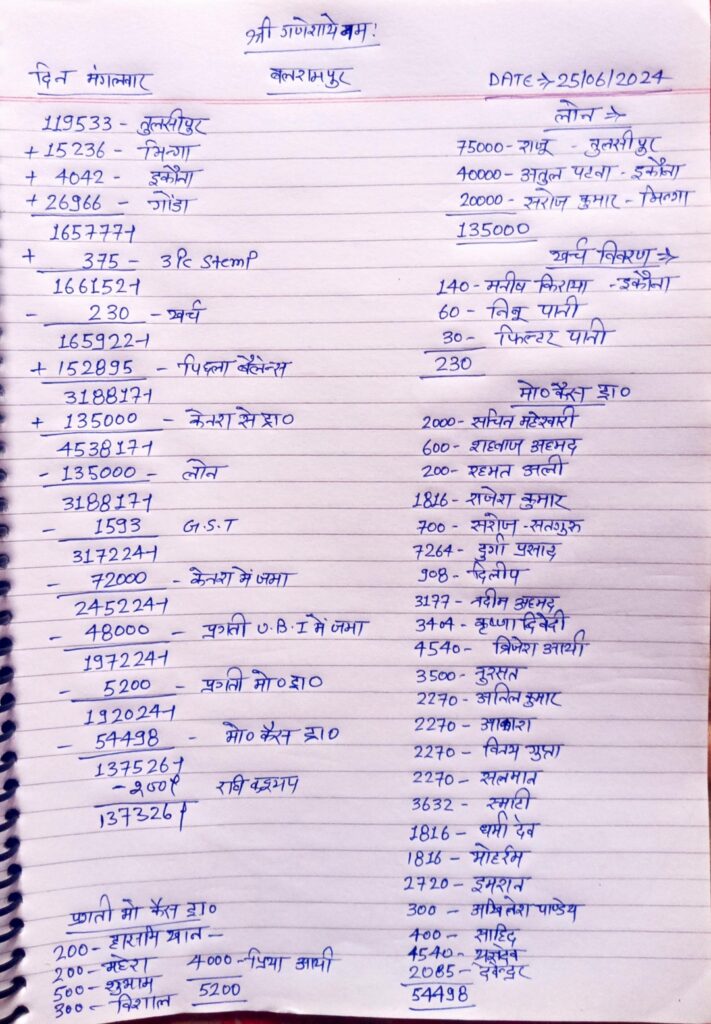 श्री गणेशाये नमः
दिन मंगलवार
बलरामपुर
DATE ⇒ 25/06/2024
119533 - तुलसीपुर
+ 15236 - भिन्गा
+ 4042 - इकौना
+ 26966 - गोंडा
165777-1
+ 375 - 3 Pc Stemp
166152-1
- 230 - खर्च
165922-1
+ 152895 - पिछ्ला बैलेन्स
318817-1
+ 135000 - केनरा से ड्रा०
453817-1
- 135000 - लोन
318817-1
- 1593 G.S.T
317224-1
- 72000 - केनरा में जमा
245224-1
- 48000 - प्रगती U.B.I में जमा
197224-1
- 5200 - प्रगती मो० ड्रा०
192024-1
- 54498 - मो० कैस ड्रा०
137526-1
- 200/ रवि कश्यप
137326/
प्रगती मो कैस ड्रा०
200 - हासीम खान -
200 - महेश
500 - शुभाम
300 - विशाल
4000 - प्रिया आर्या
5200
लोन ⇒
75000 - राजू - तुलसीपुर
40000 - अतुल पटवा - इकौना
20000 - सरोज कुमार - भिन्गा
135000
खर्च विवरण ⇒
140 - मनीष किराया - इकौना
60 - निबू पानी
30 - फिल्टर पानी
230
मो० कैस ड्रा०
2000 - सचिन महेश्वरी
600 - शहबाज अहमद
200 - रहमत अली
1816 - राजेश कुमार
700 - सरोज - सतगुरु
7264 - दुर्गा प्रसाद
908 - दिलीप
3177 - नदीम अहमद
3404 - कृष्णा दिवेदी
4540 - ब्रिजेश आर्या
3500 - नुरसत
2270 - अनिल कुमार
2270 - आकाश
2270 - विनय गुप्ता
2270 - सलमान
3632 - स्माटी
1816 - धर्मा देव
1816 - मोहर्रम
2720 - इमरान
300 - अखिलेश पाण्डेय
400 - साहिद
4540 -
2085 - देवेन्द्र
54498